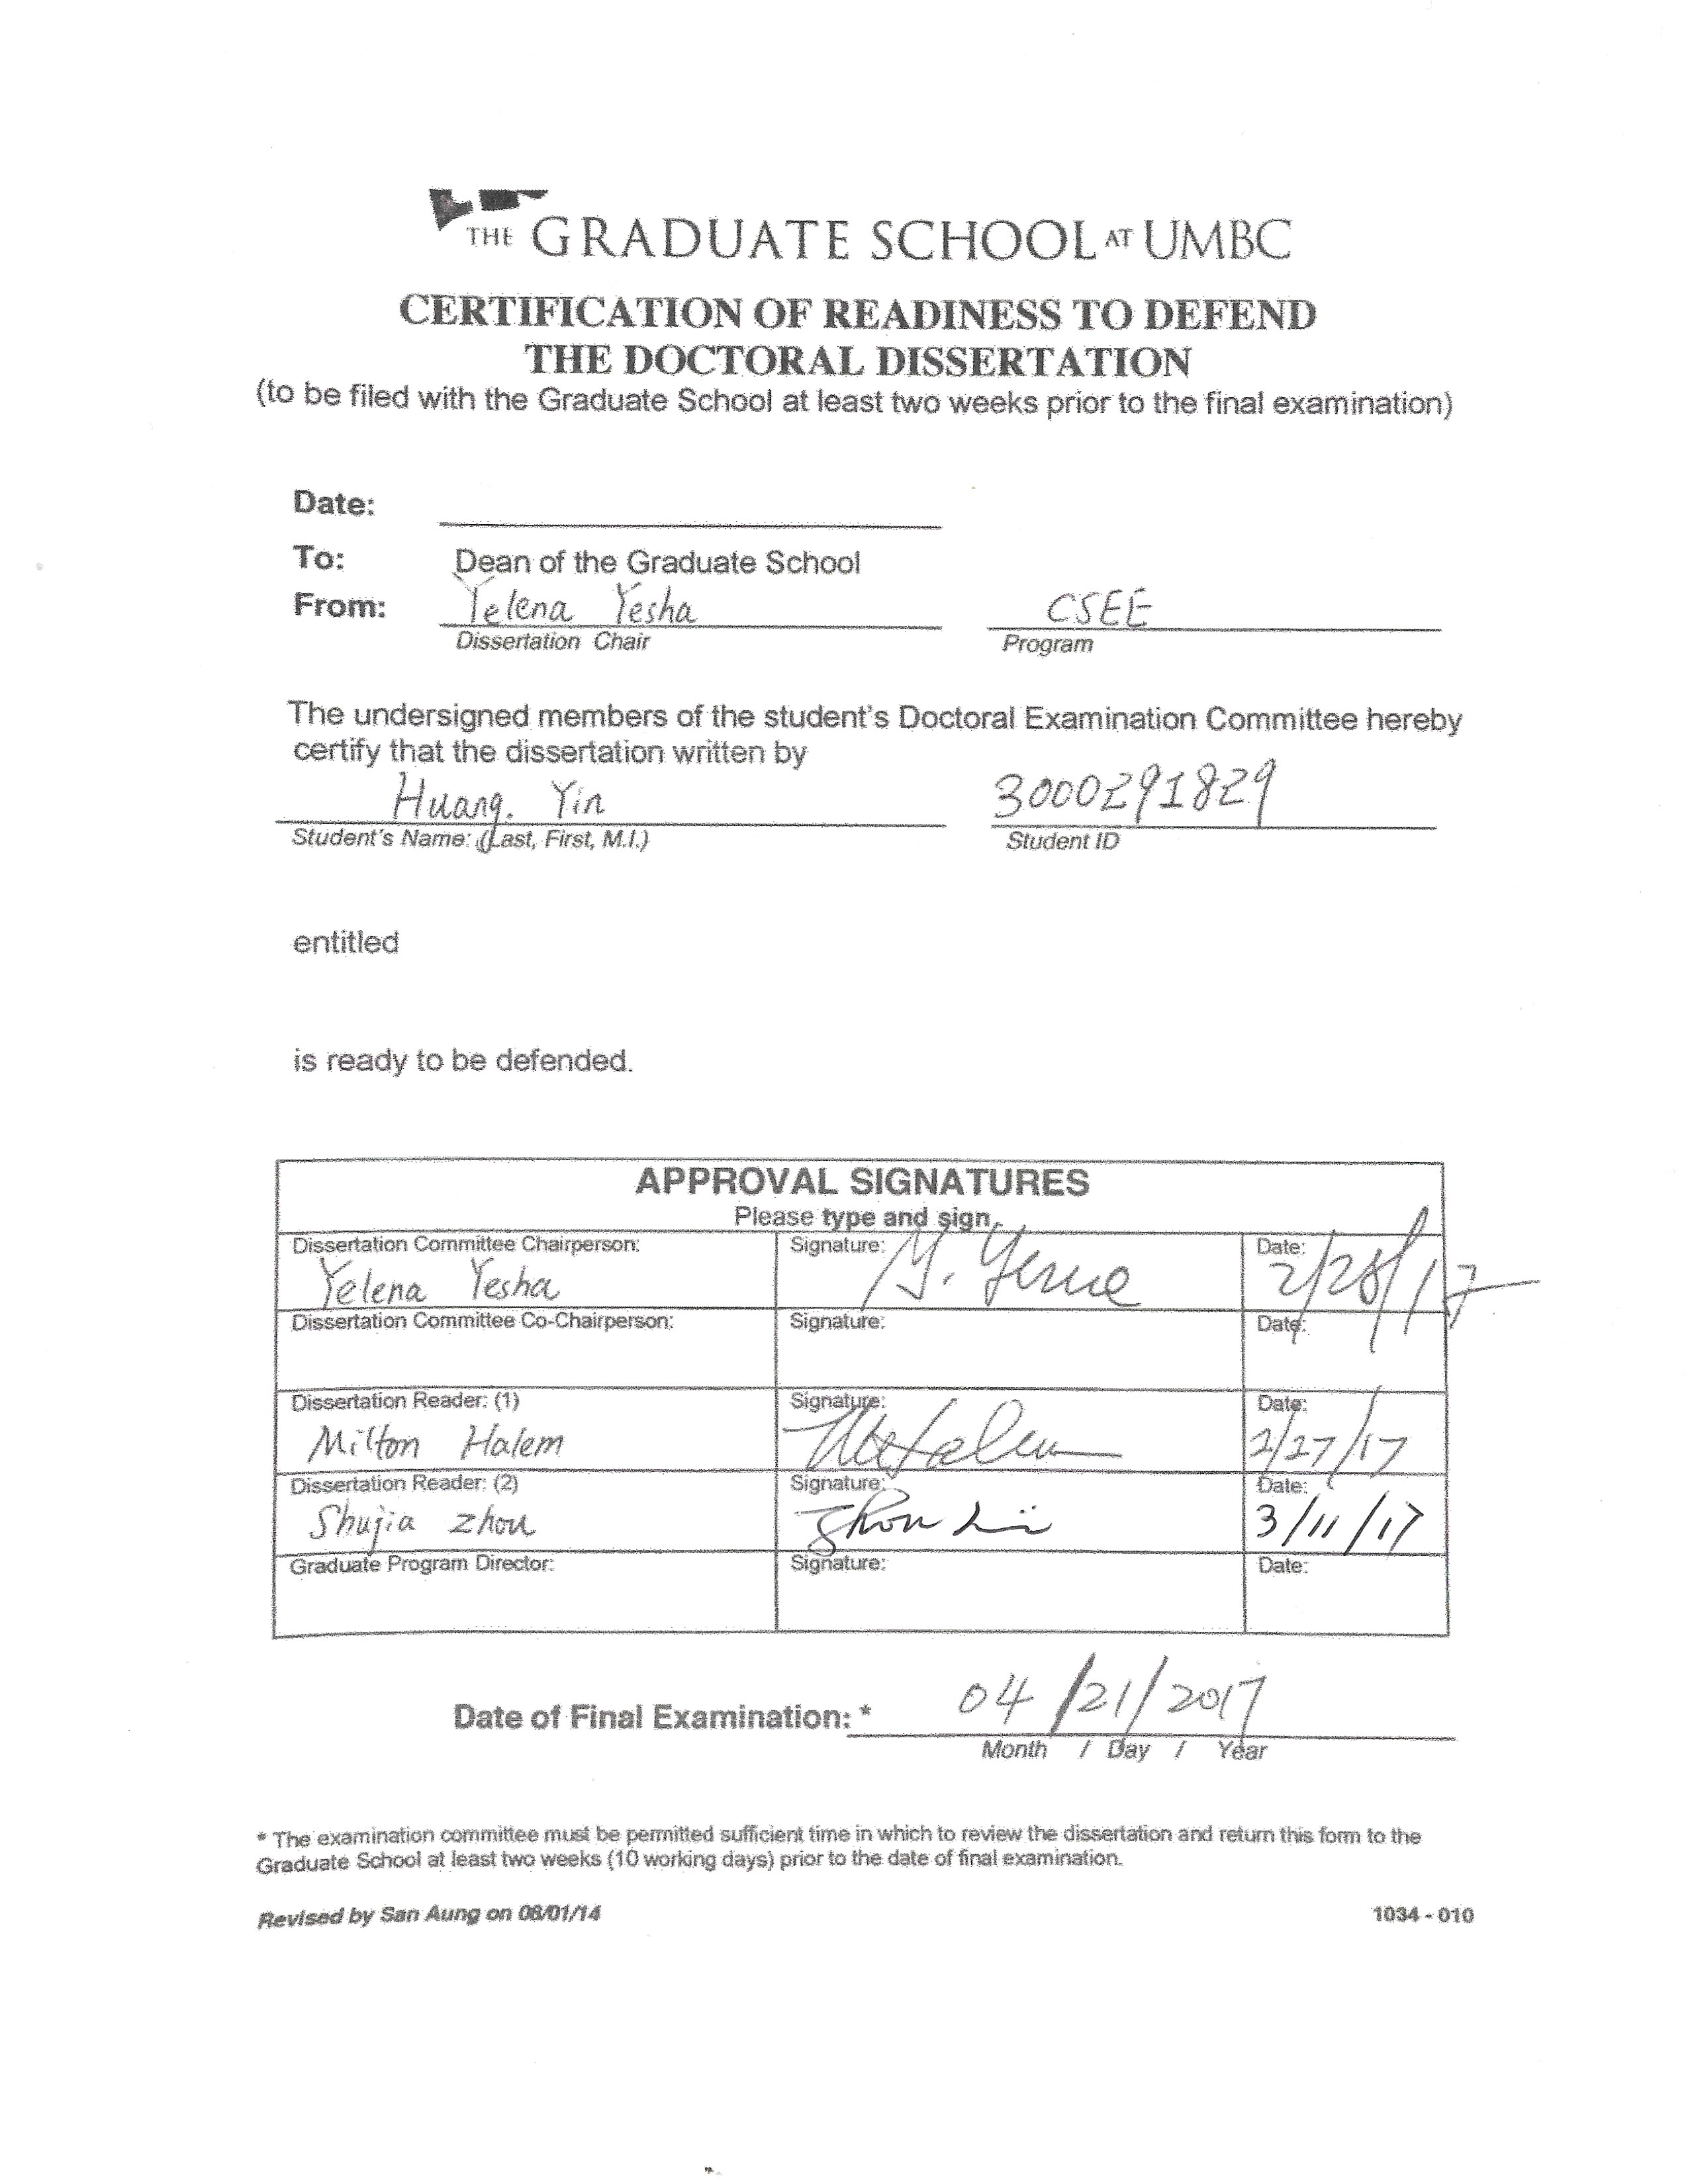 THE GRADUATE SCHOOL AT UMBC
CERTIFICATION OF READINESS TO DEFEND
THE DOCTORAL DISSERTATION
(to be filed with the Graduate School at least two weeks prior to the final examination)
Date:
To: Dean of the Graduate School
From: Yelena Yesha CSEE
Dissertation Chair Program
The undersigned members of the student's Doctoral Examination Committee hereby
certify that the dissertation written by
Huang. Yin 3000291829
Student's Name: (Last, First, M.I.) Student ID
entitled
is ready to be defended.
APPROVAL SIGNATURES
Please type and sign.
Dissertation Committee Chairperson: Signature: Date:
Yelena Yesha Y. 2/28/17
Dissertation Committee Co-Chairperson: Signature: Date:
Dissertation Reader: (1) Signature: Date:
Milton Halem 2/27/17
Dissertation Reader: (2) Signature: Date:
Shujia Zhou 3/11/17
Graduate Program Director: Signature: Date:
Date of Final Examination: * 04/21/2017
Month / Day / Year
* The examination committee must be permitted sufficient time in which to review the dissertation and return this form to the
Graduate School at least two weeks (10 working days) prior to the date of final examination.
Revised by San Aung on 08/01/14 1034 - 010